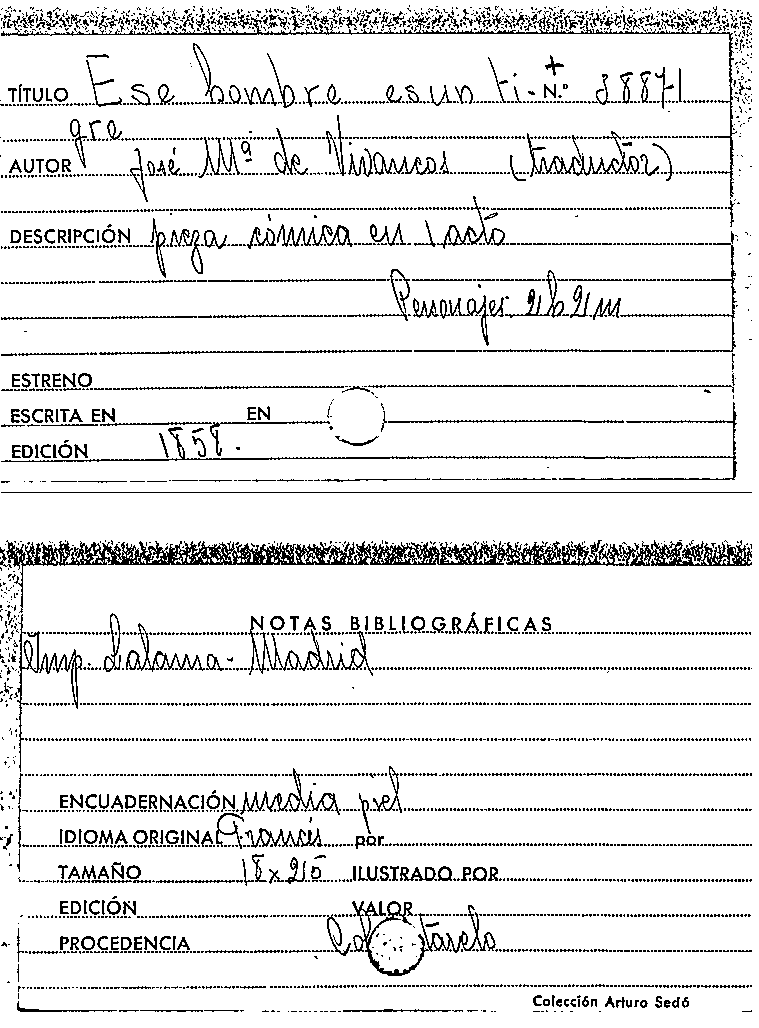 TÍTULO Ese hombre es un ti- N.º 38871
gre
AUTOR José Mª de Vivancos (traductor)
DESCRIPCIÓN pieza cómica en 1 acto
Personajes 2h 2m
ESTRENO
ESCRITA EN EN
EDICIÓN 1858.
NOTAS BIBLIOGRÁFICAS
Imp. Lalama - Madrid
ENCUADERNACIÓN media piel
IDIOMA ORIGINAL Francés por
TAMAÑO 18 x 26 ILUSTRADO POR
EDICIÓN VALOR
PROCEDENCIA
Colección Arturo Sedó